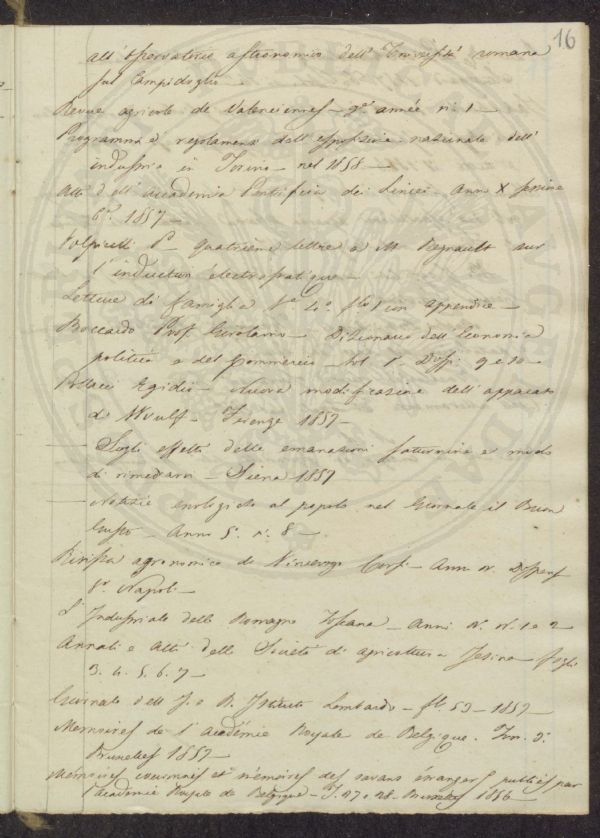 16
all'Osservatorio astronomico dell'Università romana
sul Campidoglio
Revue agricole de Valenciennes - 9e année n. 1
Programma e regolamento dell'esposizione nazionale dell'
industria in Torino - nel 1858
Atti dell'Accademia Pontificia dei Lincei - Anno X sessione
6a 1857
Volpicelli P. quatrième lettre a M. Regnault sur
l'induction électrostatique
Letture di famiglia in appendice
Boccardo Prof. Girolamo - Dizionario dell'Economia
politica e del Commercio - Vol 1 Disp. 9 e 10
Pollacci Egidio - Nuova modificazione dell'apparato
di Woulf - Firenze 1857
- Sugli effetti delle emanazioni saturnine e modo
di rimediarvi - Siena 1857
- Notizie enologiche al popolo nel Giornale il Buon
Gusto - Anno 5. n. 8
Rivista agronomica di Vincenzo Corsi - Anno Dispensa
Napoli
L'Industriale della Romagna Toscana - Anni N. 1 e 2
Annali e Atti della Società di agricoltura Jesina - fogli
3. 4. 5. 6. 7
Giornale dell'I. e R. Istituto Lombardo - 53 - 1857
Memoires de l'Académie Royale de Belgique. Tom.
Bruxelles 1857
Mémoires couronnés et mémoires des savans étrangers publiés par
l'académie Royale de Belgique - T. 27 e 28 - Bruxelles 1856